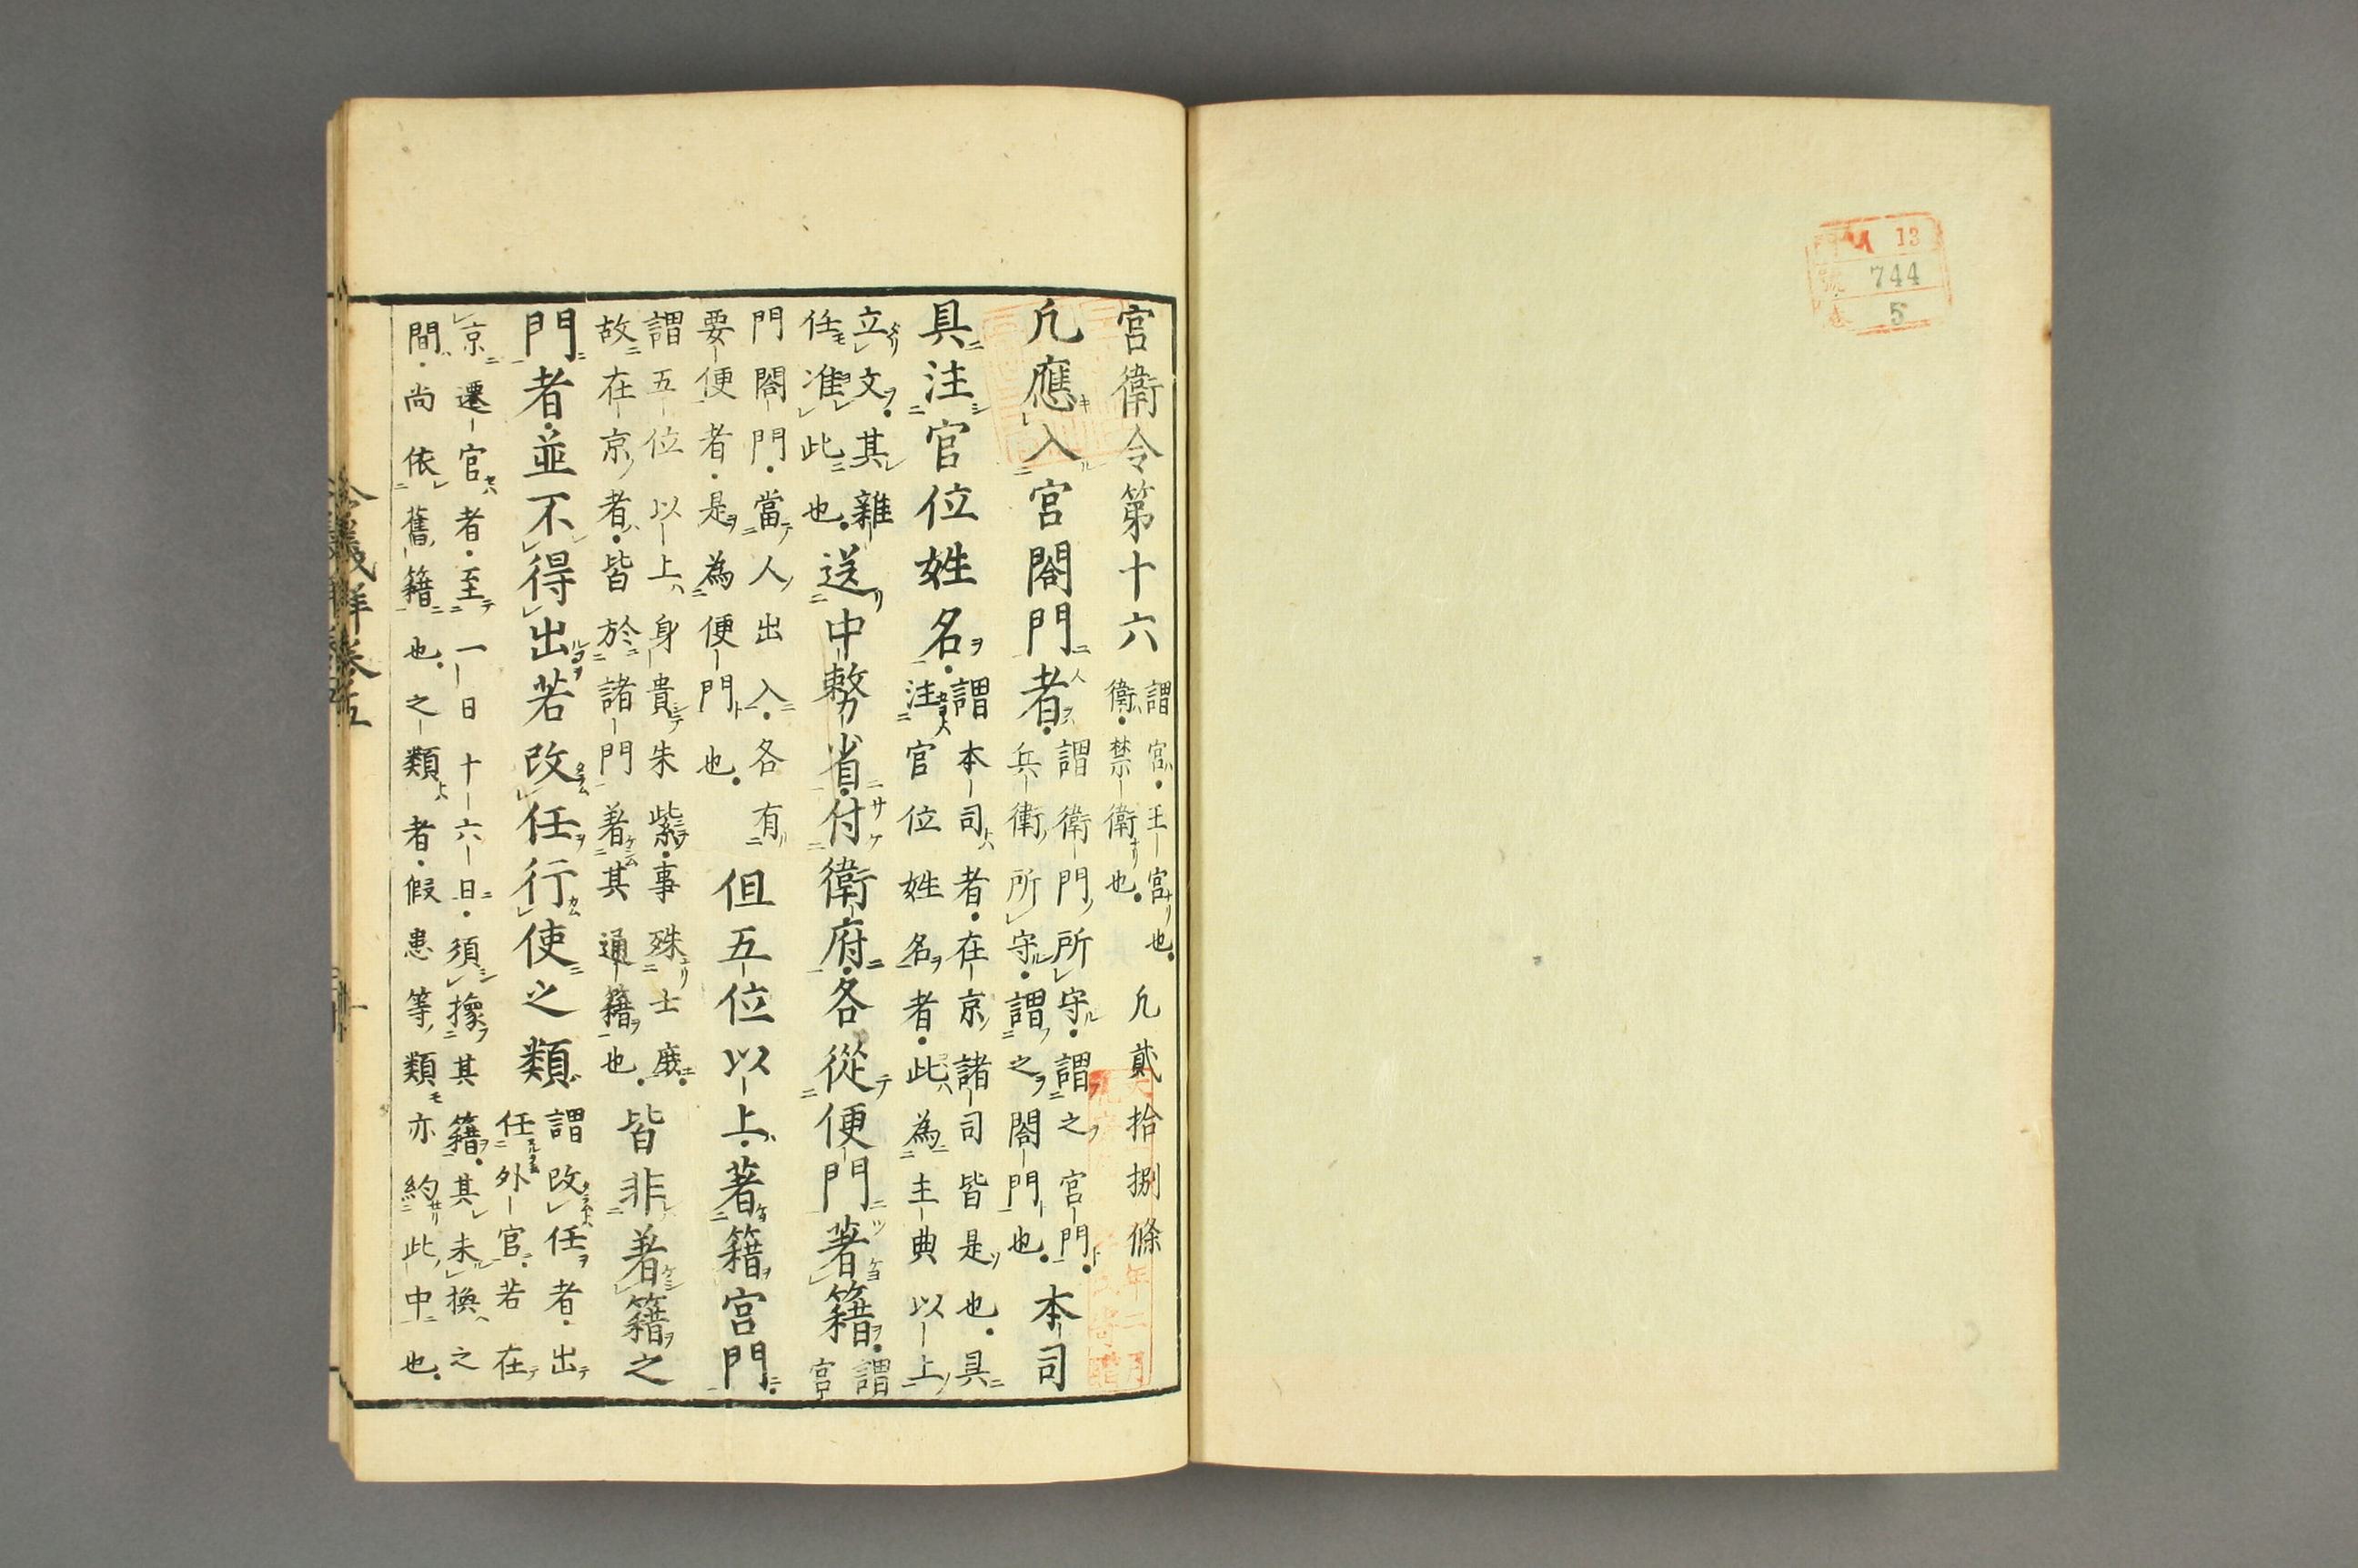 門 13
號 744
卷 5
宮衛令第十六 謂宮。王宮也。衛。禁衛也。 凡貳拾捌條
凡應入宮閤門者。 謂衛門所守。謂之宮門。兵衛所守。謂之閤門也。 本司
具注官位姓名。 謂本司者。在京諸司皆是也。具注官位姓名者。此為主典以上
立文。其雜任准此也。 送中務省。付衛府。各從便門著籍。 謂宮
門閤門。當人出入。各有要便者。是為便門也。 但五位以上。著籍宮門。
謂五位以上身貴朱紫。事殊士庶。故在京者。皆於諸門著其通籍也。 皆非著籍之
門者。並不得出若改任行使之類 謂改任者。出任外官。若在
京遷官者。至一日十六日。須據其籍。其未換之間。尚依舊籍也。之類者。假患等類亦約此中也。
令義解卷五